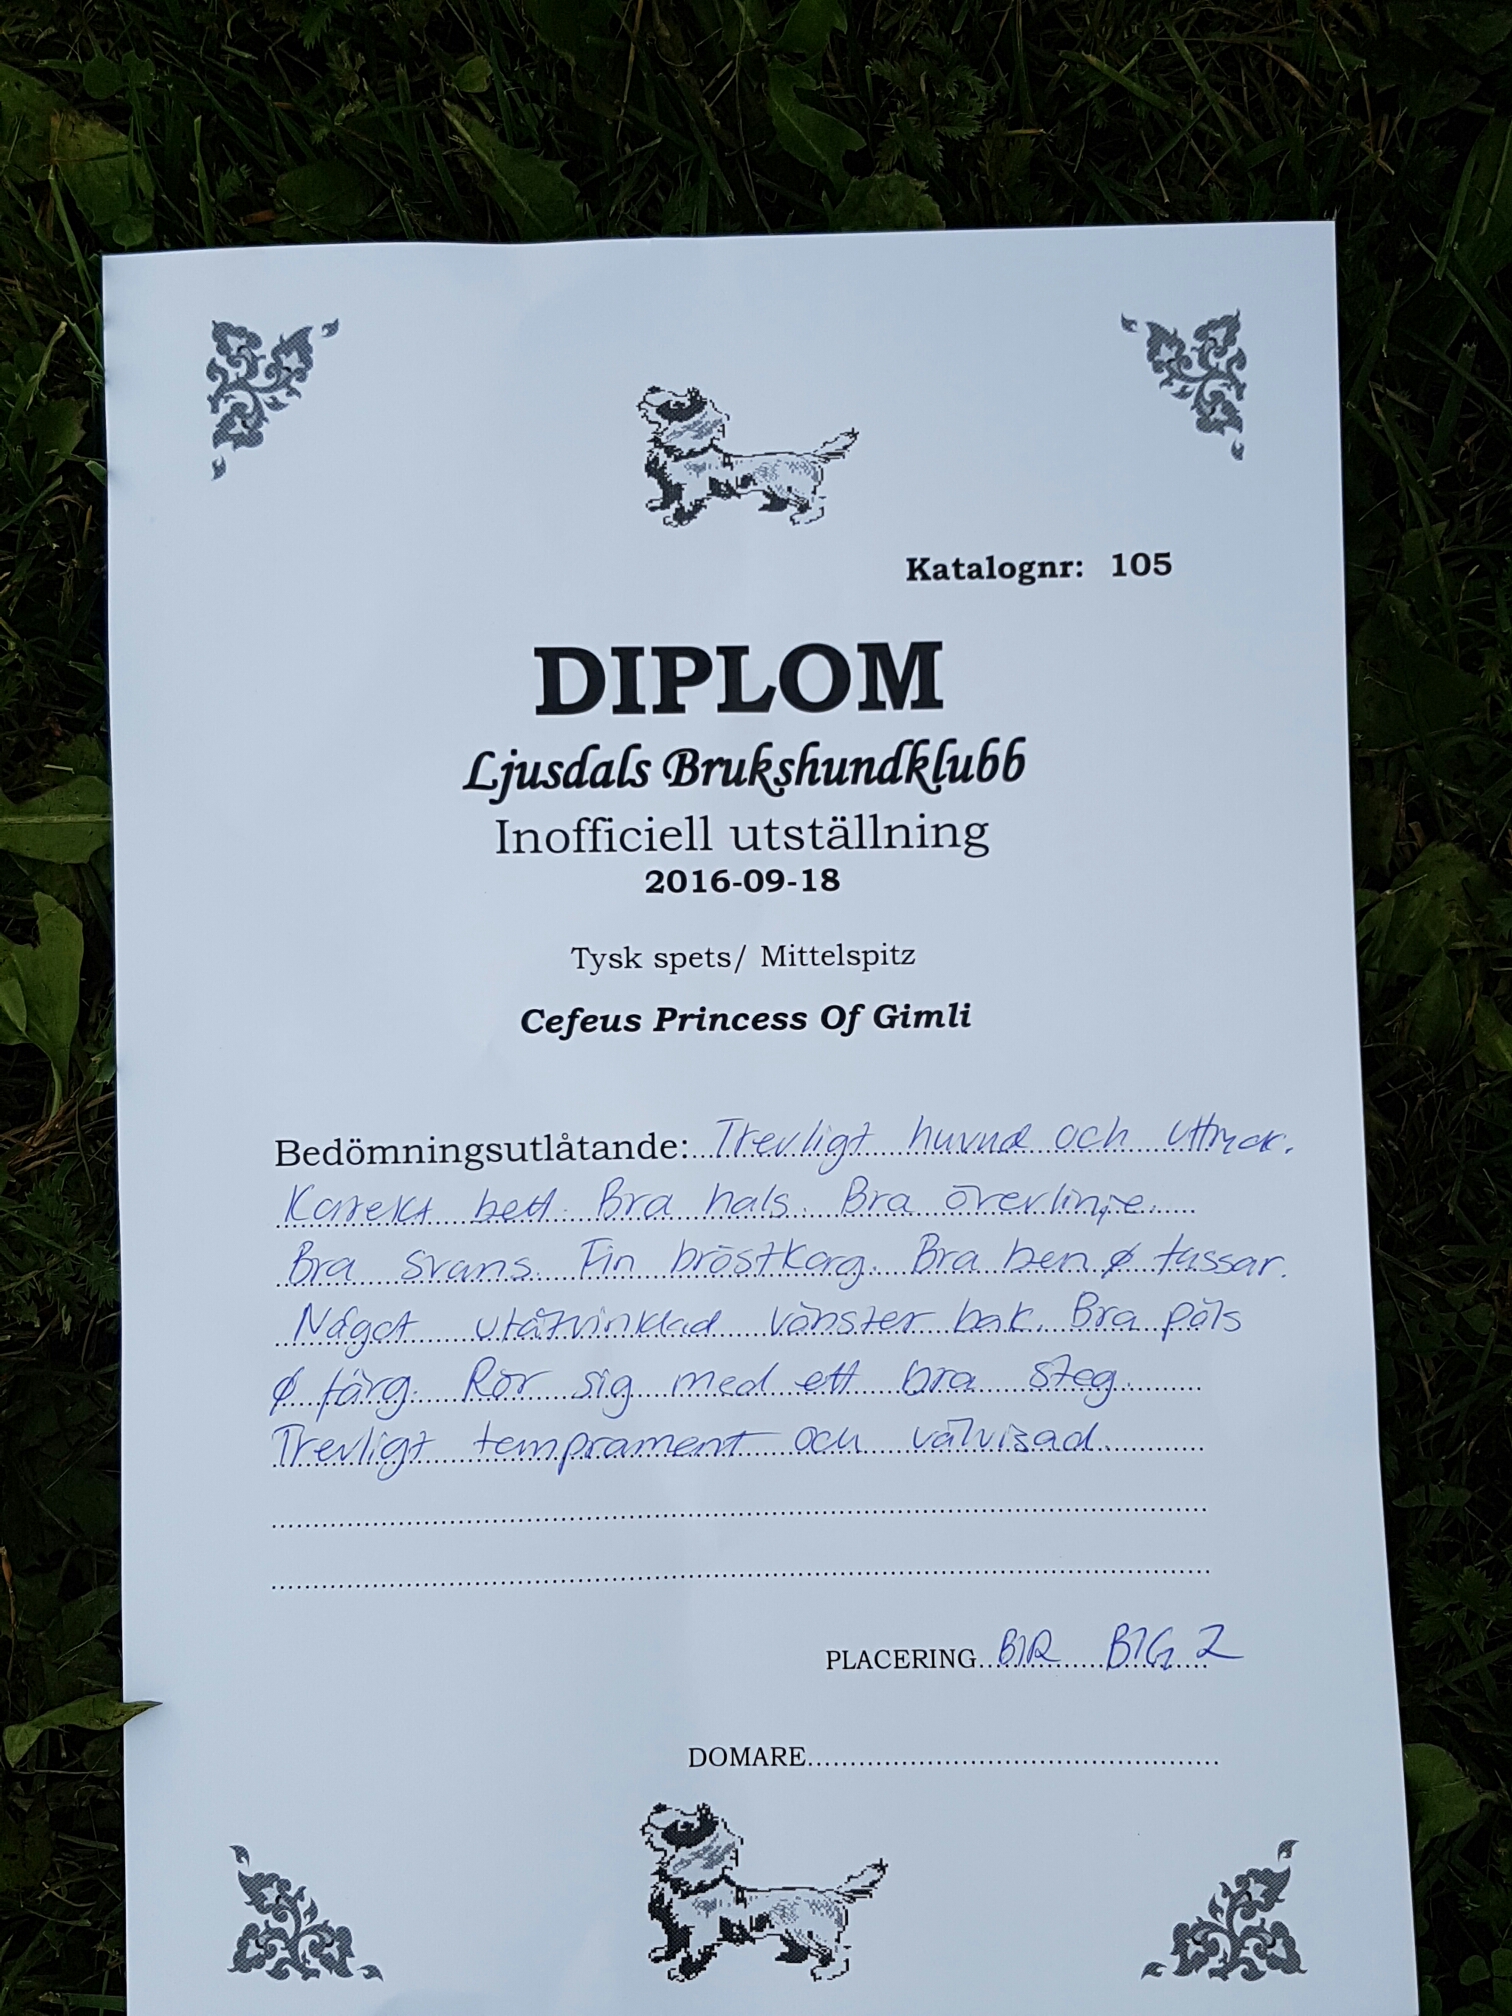 Katalognr: 105
DIPLOM
Ljusdals Brukshundklubb
Inofficiell utställning
2016-09-18
Tysk spets/ Mittelspitz
Cefeus Princess Of Gimli
Bedömningsutlåtande: Trevligt huvud och uttryck.
Korrekt bett. Bra hals. Bra överlinje.
Bra svans. Fin bröstkorg. Bra ben & tassar.
Något utåtvinklad vänster bak. Bra päls
& färg. Rör sig med ett bra steg.
Trevligt temprament och välvisad.
PLACERING BIR BIG 2
DOMARE